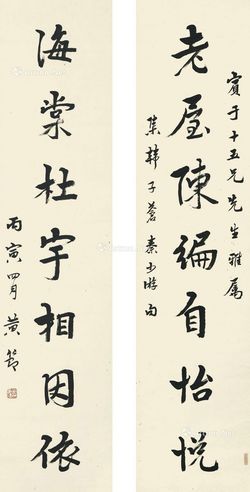 賓于十五兄先生雅属
老屋陳編自怡悅
集韓子蒼秦少游句
海棠杜宇相因依
丙寅四月黄節